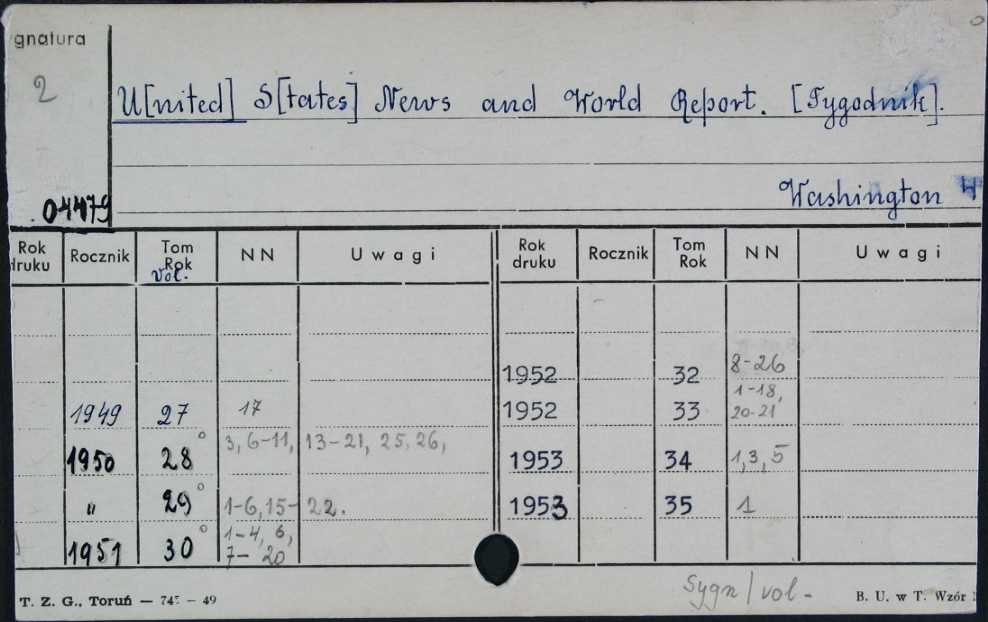 gnatura
2
U[nited] S[tates] News and World Report. [Tygodnik].
04479
Washington
Rok druku Rocznik Tom Rok Vol. NN Uwagi Rok druku Rocznik Tom Rok NN Uwagi
1952 32 8-26
1949 27 17 1952 33 1-18, 20-21
1950 28° 3, 6-11, 13-21, 25, 26, 1953 34 1,3,5
" 29° 1-6, 15-22. 1953 35 1
1951 30° 1-4, 6, 7-20
Sygn/vol-
T. Z. G., Toruń — 745 — 49 B. U. w T. Wzór